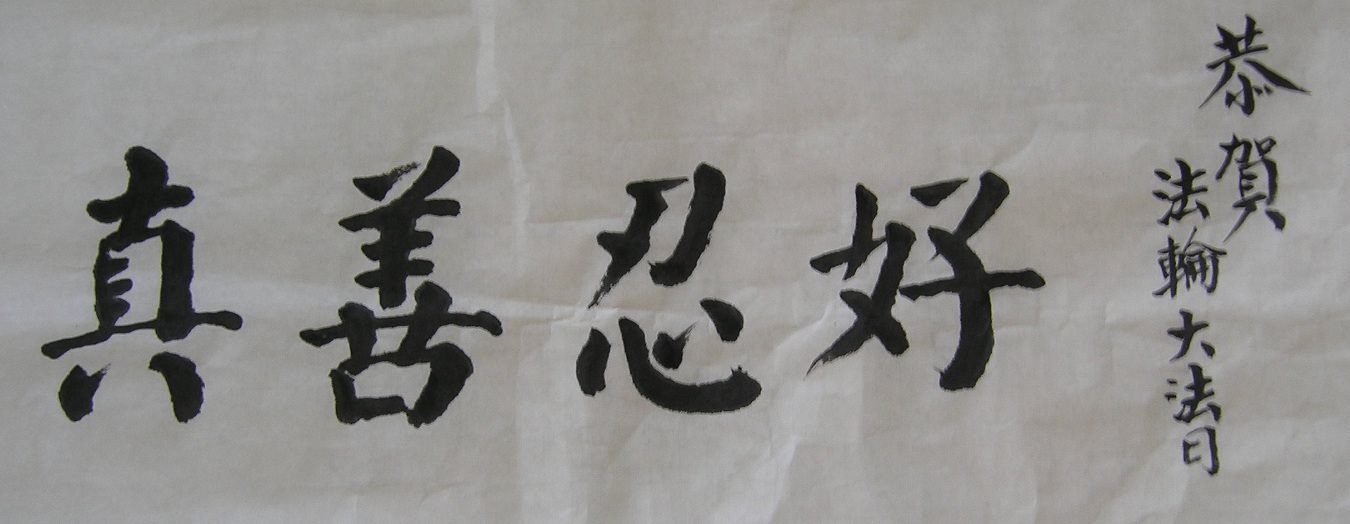 真善忍好
恭賀
法輪大法日